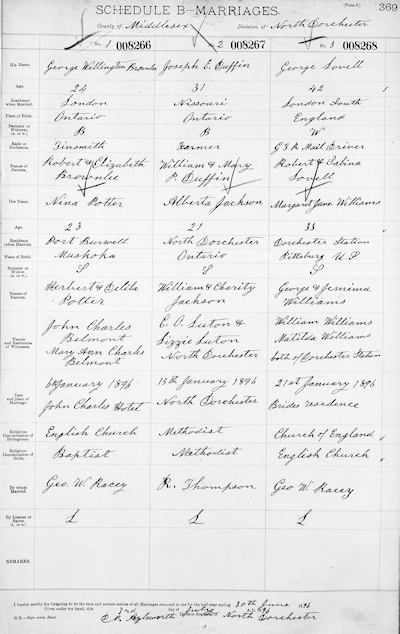 SCHEDULE B—MARRIAGES.
(Form 8.)
369
County of Middlesex
Division of North Dorchester
No. 1 008266
No. 2 008267
No. 3 008268
His Name
George Wellington Brownlee
Joseph E. Duffin
George Sovell
Age.
24
31
42
Residence when Married.
London
Nissouri
London South
Place of Birth.
Ontario
Ontario
England
Bachelor or Widower, (B. or W.)
B
B
W
Rank or Profession.
Tinsmith
Farmer
G T R Mail Driver
Names of Parents.
Robert & Elizabeth Brownlee
William & Mary P. Duffin
Robert & Salina Sovell
Her Name
Nina Potter
Alberta Jackson
Margaret Jane Williams
Age.
23
21
Residence when Married.
Port Burwell
North Dorchester
Dorchester Station
Place of Birth.
Muskoka
Ontario
Pittsburg U. S.
Spinster or Widow, (S. or W.)
S
S
S
Names of Parents.
Herbert & Delila Potter
William & Charity Jackson
George & Jemima Williams
Names and Residences of Witnesses.
John Charles Belmont
Mary Ann Charles Belmont
C. O. Luton &
Lizzie Luton
North Dorchester
William Williams
Matilda Williams
both of Dorchester Station
Date and place of Marriage.
6th January 1896
John Charles Hotel
15th January 1896
North Dorchester
21st January 1896
Brides residence
Religious Denomination of Bridegroom.
English Church
Methodist
Church of England
Religious Denomination of Bride.
Baptist
Methodist
English Church
By whom Married.
Geo. W. Racey
R. Thompson
Geo W. Racey
By License or Banns. (L. or B.)
L
L
L
REMARKS.
I hereby certify the foregoing to be the true and correct entries of all Marriages returned to me for the half-year ending 30th June 1896
Given under my hand, this 3rd day of July A.D. 1896
Division Registrar of North Dorchester
N.B.—Sign every Sheet.